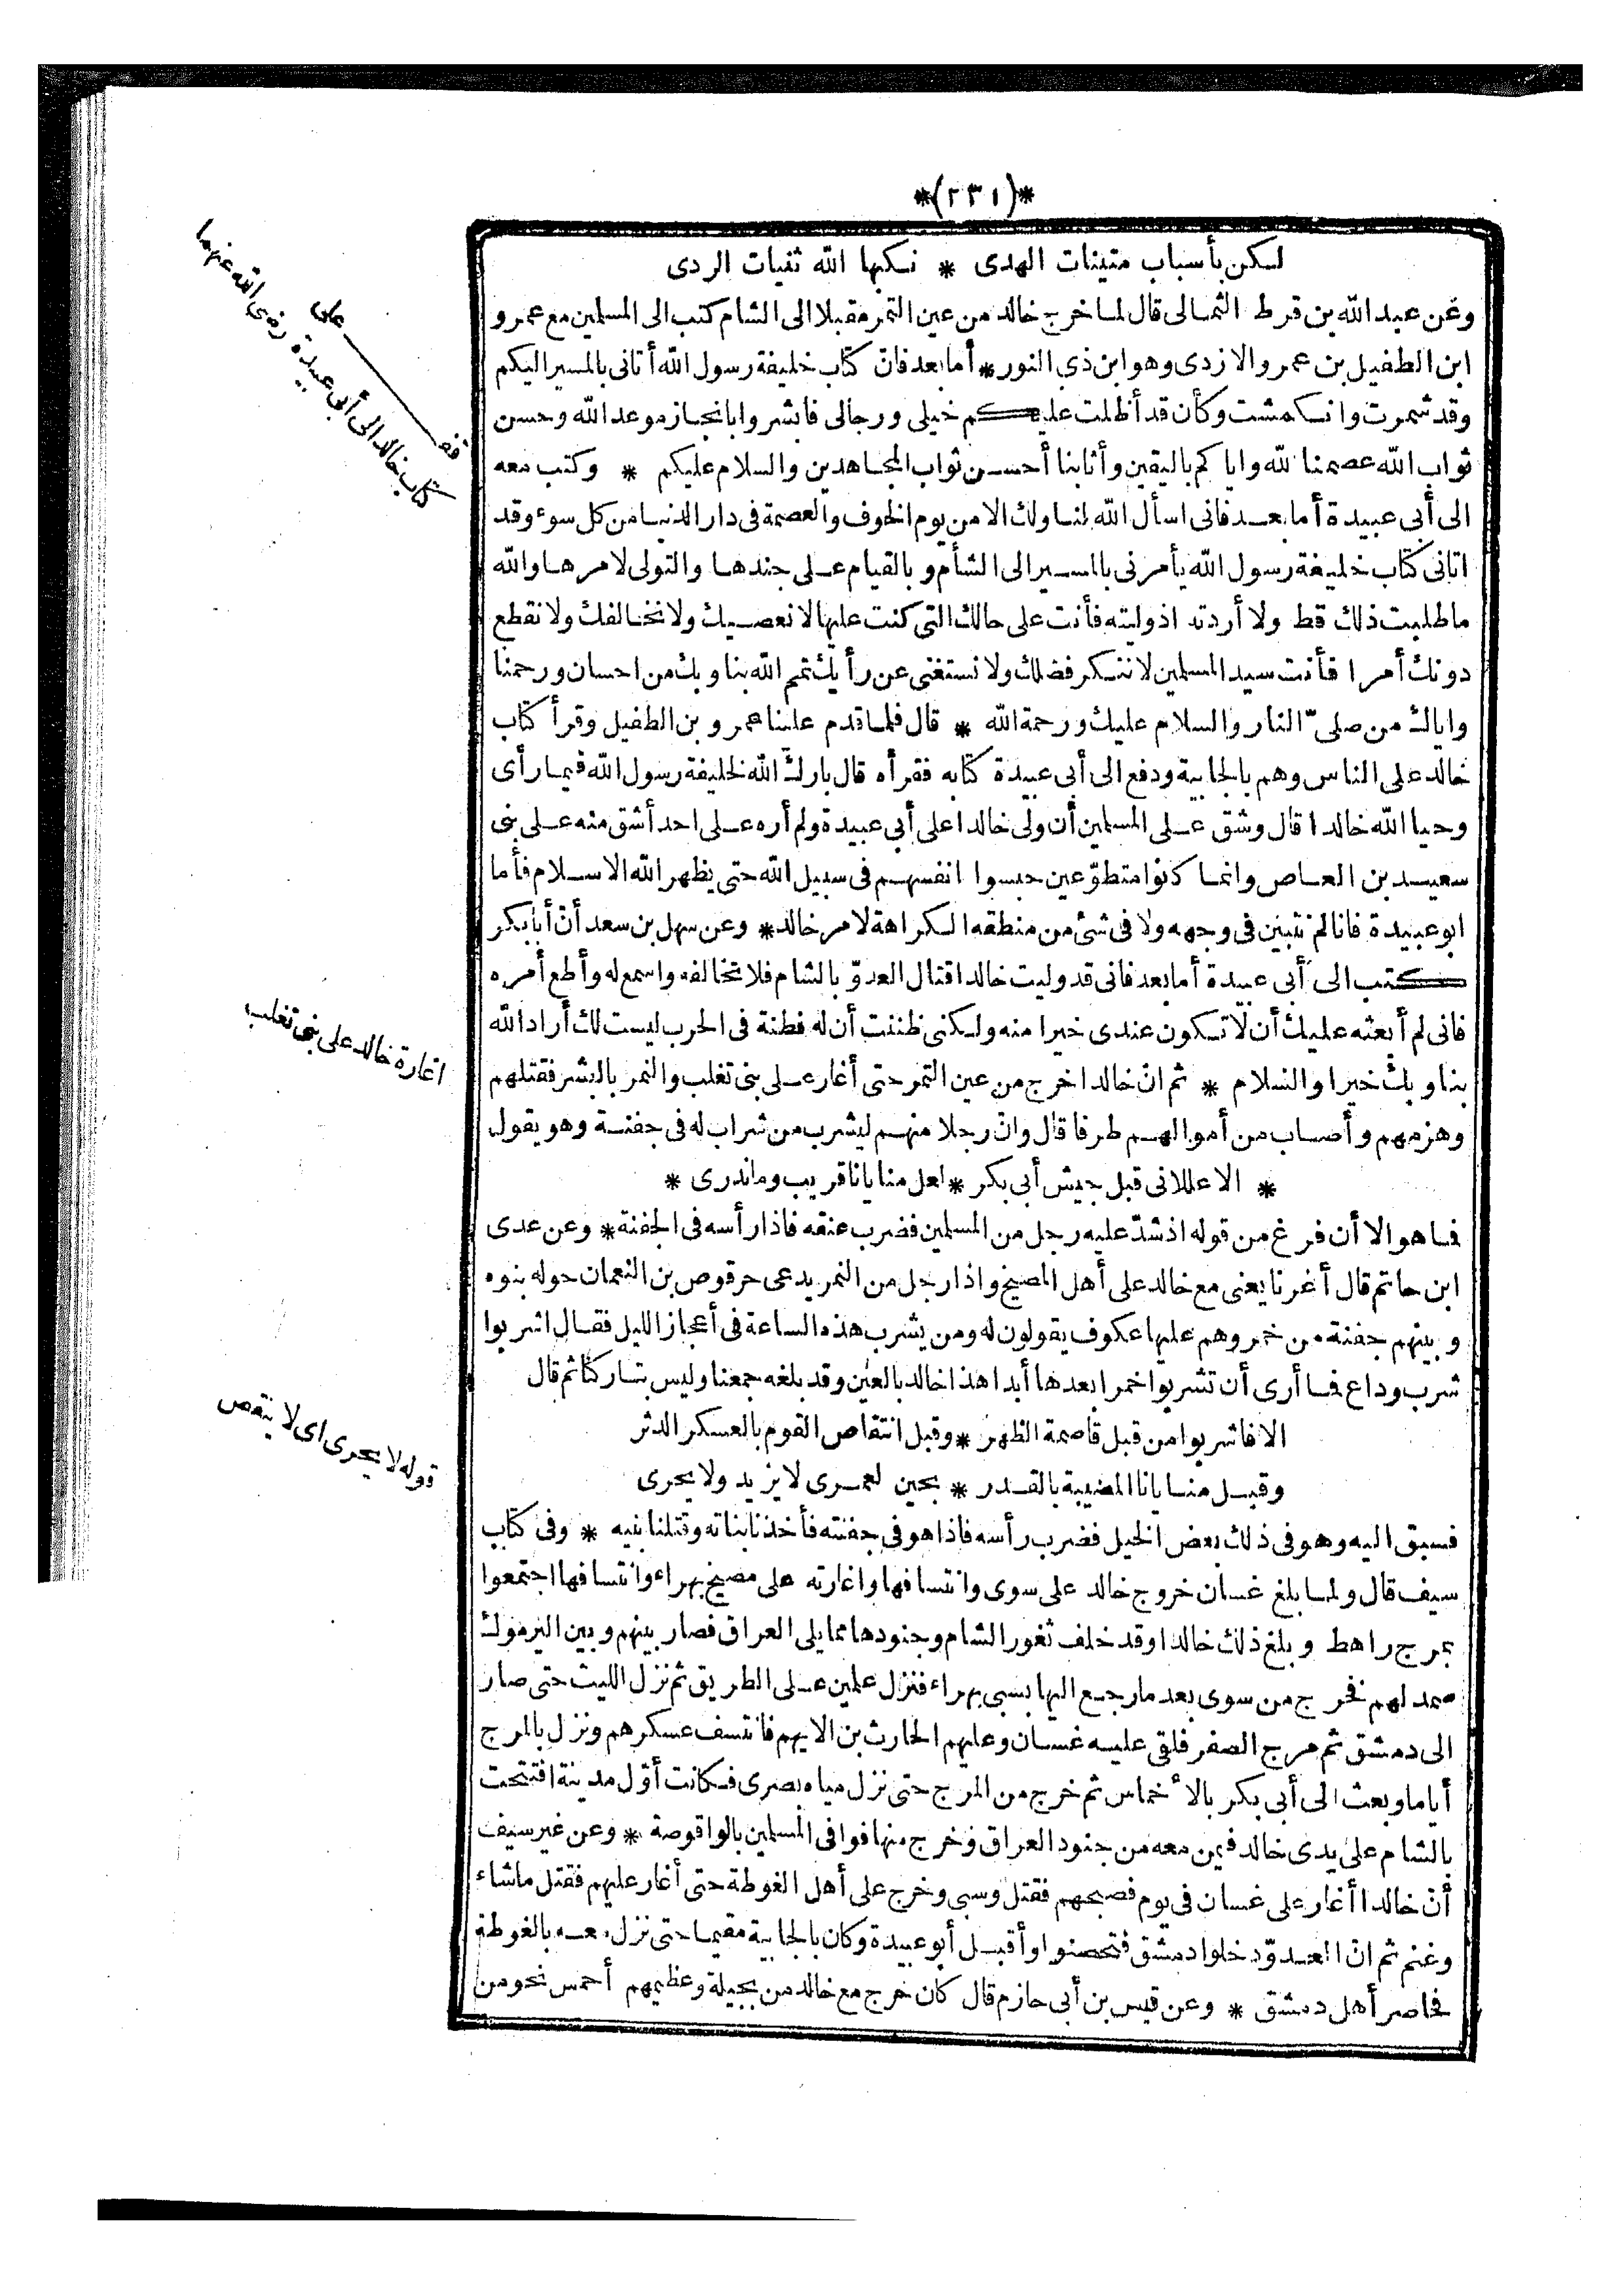 *(٢٣١)*
لكن بأسباب متينات الهدى * نكبها الله ثنيات الردى
وعن عبد الله بن قرط الثمالى قال لما خرج خالد من عين التمر مقبلا الى الشام كتب الى المسلمين مع عمرو
ابن الطفيل بن عمرو الازدى وهو ابن ذي النور * أما بعد فان كتاب خليفة رسول الله أتانى بالمسير اليكم
وقد شمرت وانكمشت وكأن قد أظلت عليكم خيلى ورجالى فابشروا بانجاز موعد الله وحسن
ثواب الله عصمنا الله واياكم باليقين وأثابنا أحسن ثواب المجاهدين والسلام عليكم * وكتب معه
الى أبى عبيدة أما بعد فانى اسأل الله لنا ولك الامن يوم الخوف والعصمة فى دار الدنيا من كل سوء وقد
اتانى كتاب خليفة رسول الله يأمرنى بالمسير الى الشأم وبالقيام على جندها والتولى لامرها والله
ما طلبت ذلك قط ولا أردته اذ وليته فأنت على حالك التى كنت عليها لا نعصيك ولا نخالفك ولا نقطع
دونك أمرا فأنت سيد المسلمين لا ننكر فضلك ولا نستغنى عن رأيك تمم الله بنا وبك من احسان ورحمنا
واياك من صلىّ النار والسلام عليك ورحمة الله * قال فلما قدم علينا عمرو بن الطفيل وقرأ كتاب
خالد على الناس وهم بالجابية ودفع الى أبى عبيدة كتابه فقرأه قال بارك الله لخليفة رسول الله فيما رأى
وحيا الله خالدا قال وشق على المسلمين أن ولى خالدا على أبى عبيدة ولم أره على احد أشق منه على بنى
سعيد بن العاص وانما كانوا متطوّعين حبسوا انفسهم فى سبيل الله حتى يظهر الله الاسلام فأما
ابو عبيدة فانا لم نتبين فى وجهه ولا فى شئ من منطقه الكراهة لامر خالد * وعن سهل بن سعد أنّ أبا بكر
كتب الى أبى عبيدة أما بعد فانى قد وليت خالدا قتال العدوّ بالشام فلا تخالفه واسمع له وأطع أمره
فانى لم أبعثه عليك أن لا تكون عندى خيرا منه ولكنى ظننت أن له فطنة فى الحرب ليست لك أراد الله
بنا وبك خيرا والسلام * ثم انّ خالدا خرج من عين التمر حتى أغار على بنى تغلب والنمر بالبشر فقتلهم
وهزمهم وأصاب من أموالهم طرفا قال وانّ رجلا منهم ليشرب من شراب له فى جفنة وهو يقول
* الا عللانى قبل جيش أبى بكر * لعل منايانا قريب وما ندرى *
فما هو الا أن فرغ من قوله اذ شدّ عليه رجل من المسلمين فضرب عنقه فاذا رأسه فى الجفنة * وعن عدى
ابن حاتم قال أغرنا يعنى مع خالد على أهل المصيخ واذا رجل من النمر يدعى حرقوص بن النعمان حوله بنوه
وبينهم جفنة من خمر وهم عليها عكوف يقولون له ومن يشرب هذه الساعة فى أعجاز الليل فقال اشربوا
شرب وداع فما أرى أن تشربوا خمرا بعدها أبدا هذا خالد بالعين وقد بلغه جمعنا وليس بتاركنا ثم قال
الا فاشربوا من قبل قاصمة الظهر * وقبل انتقاص القوم بالعسكر الدثر
وقبل منايانا المصيبة بالقدر * بحين لعمرى لا يزيد ولا يحرى
فسبق اليه وهو فى ذلك بعض الخيل فضرب رأسه فاذا هو فى جفنته فأخذنا بناته وقتلنا بنيه * وفى كتاب
سيف قال ولما بلغ غسان خروج خالد على سوى وانتسافها واغارته على مصيخ بهراء وانتسافها اجتمعوا
بمرج راهط وبلغ ذلك خالدا وقد خلف ثغور الشام وجنودها مما يلى العراق فصار بينهم وبين اليرموك
صمد لهم فخرج من سوى بعد ما رجع اليها بسبى بهراء فنزل علمين على الطريق ثم نزل الليث حتى صار
الى دمشق ثم مرج الصفر فلقى عليه غسان وعليهم الحارث بن الايهم فانتسف عسكرهم ونزل بالمرج
أياما وبعث الى أبى بكر بالأخماس ثم خرج من المرج حتى نزل مياه بصرى فكانت أوّل مدينة افتتحت
بالشام على يدى خالد فيمن معه من جنود العراق وخرج منها فوافى المسلمين بالواقوصة * وعن غير سيف
أنّ خالدا أغار على غسان فى يوم فصبحهم فقتل وسبى وخرج على أهل الغوطة حتى أغار عليهم فقتل ما شاء
وغنم ثم انّ العدوّ دخلوا دمشق فتحصنوا وأقبل أبو عبيدة وكان بالجابية مقيما حتى نزل معه بالغوطة
فحاصر أهل دمشق * وعن قيس بن أبى حازم قال كان خرج مع خالد من بجيلة وعظيمهم أحمس نحو من
قف على
كتاب خالد الى أبى عبيدة رضى الله عنهما
اغارة خالد على بنى تغلب
قوله لا يحرى اى لا ينقص